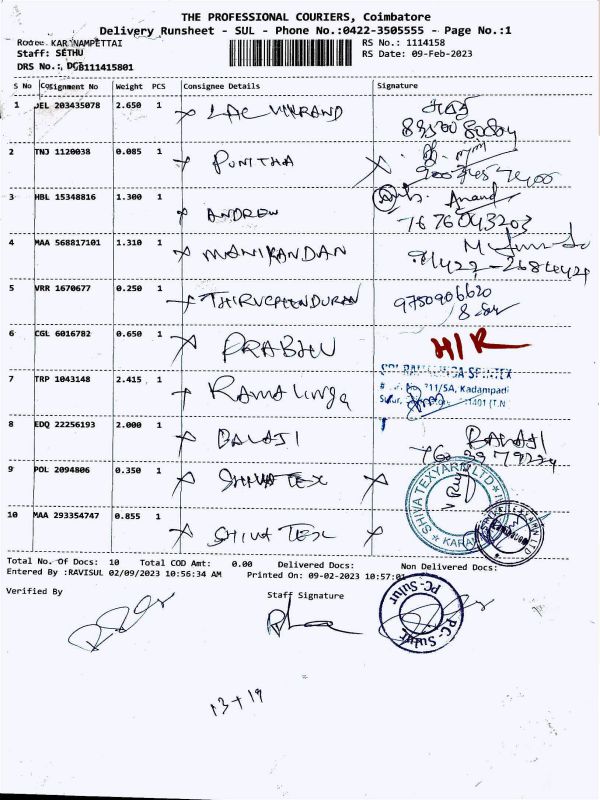 THE PROFESSIONAL COURIERS, Coimbatore
Delivery Runsheet - SUL - Phone No.:0422-3505555 - Page No.:1
Route: KARANAMPETTAI
RS No.: 1114158
Staff: SETHU
RS Date: 09-Feb-2023
DRS No.: DCB111415801
S No Consignment No Weight PCS Consignee Details Signature
1 DEL 203435078 2.650 1
2 TNJ 1120038 0.085 1 PUNITHA
3 HBL 15348816 1.300 1 ANDREW Anand
7676043203
4 MAA 568817101 1.310 1 MANIKANDAN
5 VRR 1670677 0.250 1 THIRUCHENDURAN 9750906620
6 CGL 6016782 0.650 1 PRABHU H/R
7 TRP 1043148 2.415 1 RAMALINGA
211/5A, Kadampadi
Sulur,
8 EDQ 22256193 2.000 1 BALAJI BALAJI
9 POL 2094806 0.350 1 SHIVA TEX
SHIVA TEXYARN LTD
10 MAA 293354747 0.855 1 SHIVA TEX
Total No. Of Docs: 10 Total COD Amt: 0.00 Delivered Docs: Non Delivered Docs:
Entered By :RAVISUL 02/09/2023 10:56:34 AM Printed On: 09-02-2023 10:57:01
Verified By Staff Signature
PC-Sulur
PC-Sulur
13+19